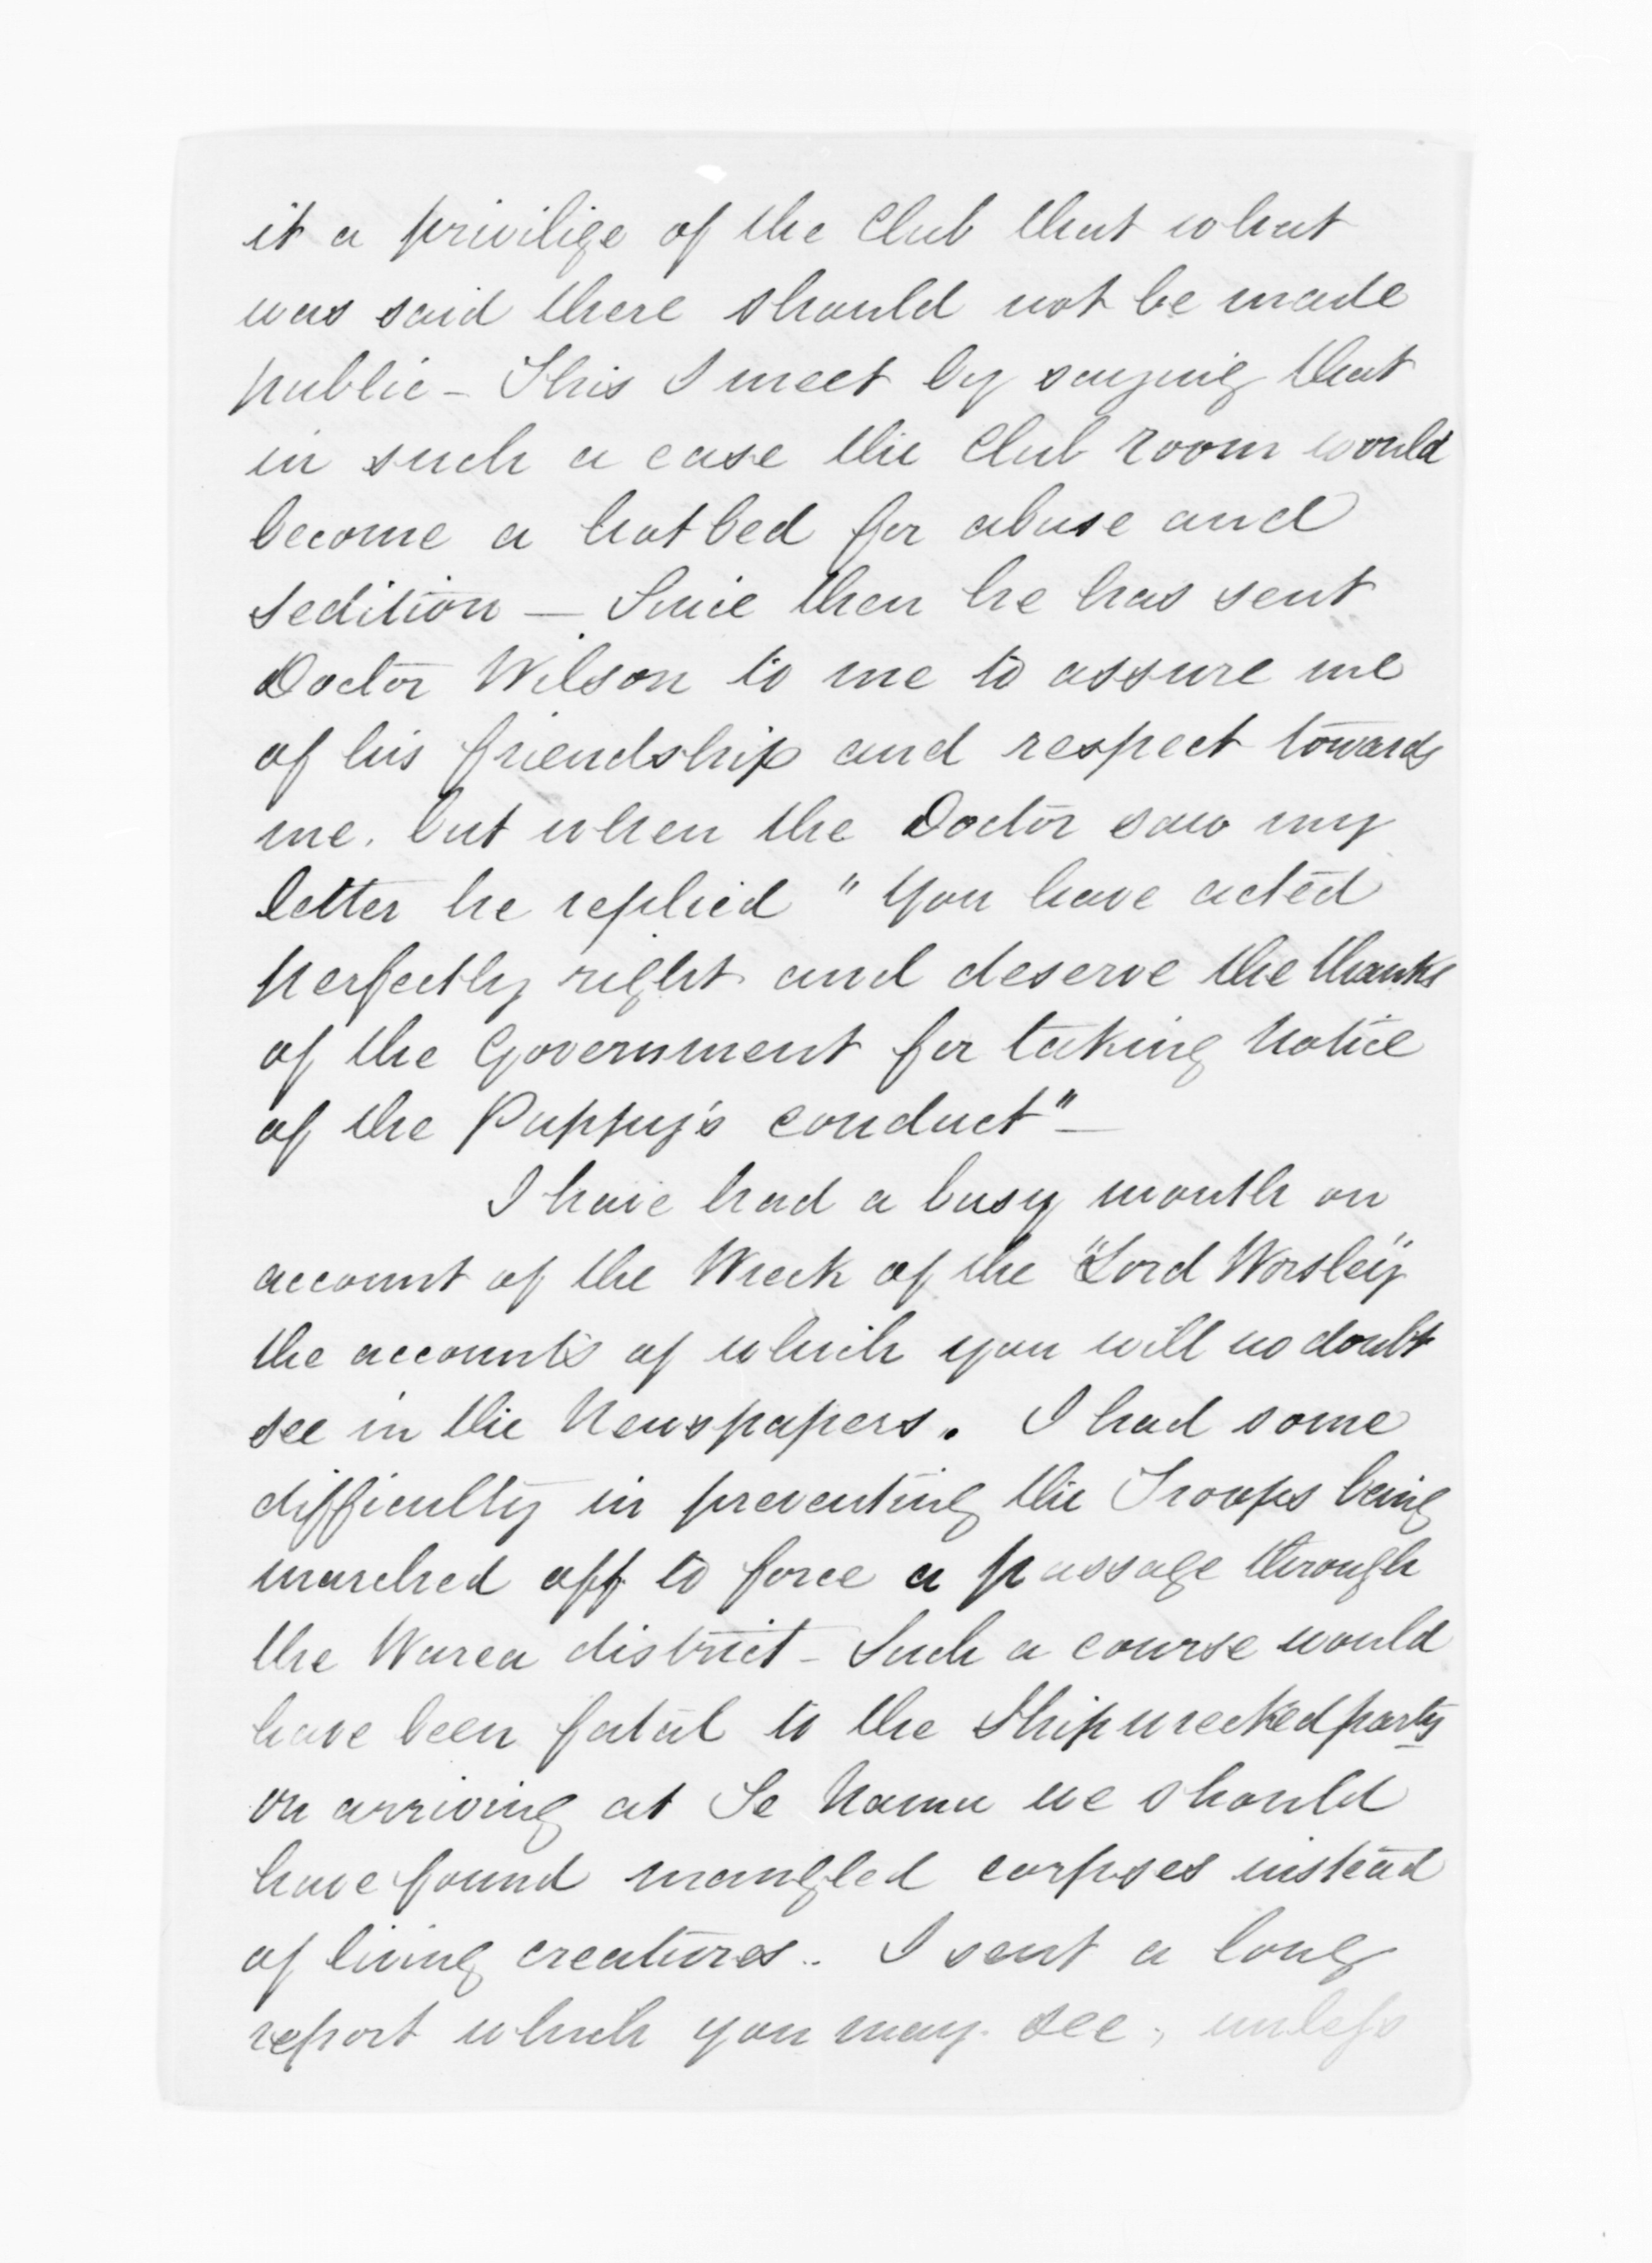 it a privilige of the Club that what
was said there should not be made
public - This I meet by saying that
in such a case the Club room would
become a hotbed for abuse and
sedition — Since then he has sent
Doctor Wilson to me to assure me
of his friendship and respect towards
me. but when the Doctor saw my
letter he replied "You have acted
perfectly right and deserve the thanks
of the Government for taking notice
of the Puppy's conduct" —
I have had a busy month on
account of the Wreck of the "Lord Worsley"
the accounts of which you will no doubt
see in the Newspapers. I had some
difficulty in preventing the Troops being
marched off to force a passage through
the Warea district - Such a course would
have been fatal to the Shipwrecked party
on arriving at Te Namu we should
have found mangled corpses instead
of living creatures.. I sent a long
report which you may see, unless